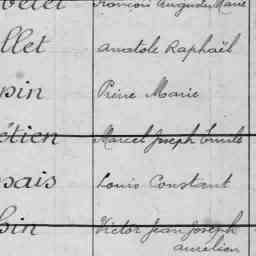 François Auguste Marie
llet Anatole Raphaël
pin Marie
étien Marcel Joseph Emile
sais Louis Constant
sin Victor Jean Joseph
aurélien